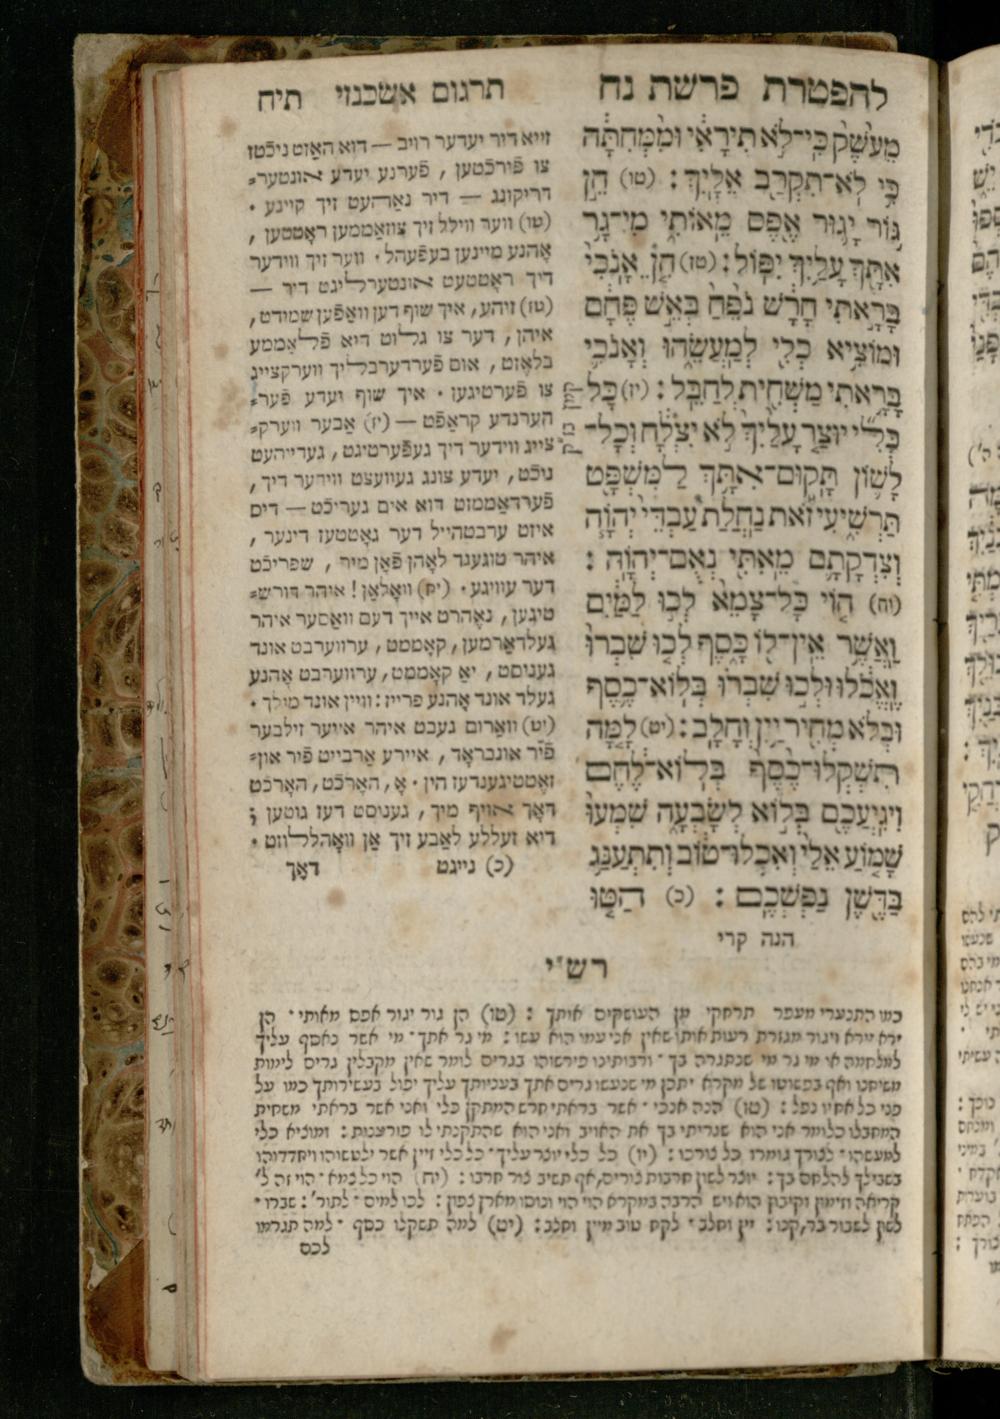 להפטרת פרשת נח
תרגום אשכנזי תיח
מֵעֹשֶׁק כִּי־לֹא תִירָאִי וּמִמְּחִתָּה
כִּי לֹא־תִקְרַב אֵלָיִךְ : (טו) הֵן
גּוֹר יָגוּר אֶפֶס מֵאוֹתִי מִי־גָר
אִתָּךְ עָלַיִךְ יִפּוֹל : (טז) הֵן אָנֹכִי
בָּרָאתִי חָרָשׁ נֹפֵחַ בְּאֵשׁ פֶּחָם
וּמוֹצִיא כְלִי לְמַעֲשֵׂהוּ וְאָנֹכִי
בָּרָאתִי מַשְׁחִית לְחַבֵּל : (יז) כָּל
כְּלִי יוּצַר עָלַיִךְ לֹא יִצְלָח וְכָל־
לָשׁוֹן תָּקוּם־אִתָּךְ לַמִּשְׁפָּט
תַּרְשִׁיעִי זֹאת נַחֲלַת עַבְדֵי יְהוָֹה
וְצִדְקָתָם מֵאִתִּי נְאֻם־יְהוָֹה :
(יח) הוֹי כָּל־צָמֵא לְכוּ לַמַּיִם
וַאֲשֶׁר אֵין־לוֹ כָּסֶף לְכוּ שִׁבְרוּ
וֶאֱכֹלוּ וּלְכוּ שִׁבְרוּ בְּלוֹא־כֶסֶף
וּבְלֹא מְחִיר יַיִן וְחָלָב : (יט) לָמָּה
תִשְׁקְלוּ־כֶסֶף בְּלוֹא־לֶחֶם
וִיגִיעֲכֶם בְּלוֹא לְשָׂבְעָה שִׁמְעוּ
שָׁמוֹעַ אֵלַי וְאִכְלוּ־טוֹב וְתִתְעַנַּג
בַּדֶּשֶׁן נַפְשְׁכֶם : (כ) הַטּוּ
הנה קרי
זייא דיר יעדער רויב — דוא האָזט ניכֿטז
צו פֿירכֿטען , פֿערנע יעדע אונטער=
דריקונג — דיר נאַהעט זיך קיינע .
(טו) ווער ווילל זיך צוזאַממען ראָטטען ,
אָהנע מיינען בעפֿעהל . ווער זיך ווידער
דיך ראָטטעט אונטערליגט דיר —
(טז) זיהע, איך שוף דען וואַפֿען שמידט,
איהן , דער צו גלוט דיא פֿלאַממע
בלאָזט, אום פֿערדערבליך ווערקצייג
צו פֿערטיגען . איך שוף יעדע פֿער=
הערנדע קראַפֿט — (יז) אַבער ווערק=
צייג ווידער דיך געפֿערטיגט, געדייהעט
ניכֿט, יעדע צונג געוועצט ווידער דיך ,
פֿערדאַממסט דוא אים געריכֿט — דיס
איזט ערבטהייל דער גאָטטעז דינער ,
איהר טוגענד לאָהן פֿאָן מיר , שפריכֿט
דער עוויגע . (יח) וואָלאָן ! איהר דורש=
טיגען, נאָהרט אייך דעם וואַסער איהר
געלדאַרמען, קאָממט, ערווערבט אונד
געניסט , יאַ קאָממט, ערווערבט אָהנע
געלד אונד אָהנע פרייז : וויין אונד מילך .
(יט) וואַרום געבט איהר אייער זילבער
פֿיר אונבראָד, איירע אַרבייט פֿיר און=
זאָטטיגענדעז הין . אָ, האָרכֿט, האָרכֿט
דאָך אויף מיך, געניסט דעז גוטען ;
דיא זעללע לאַבע זיך אַן וואָהללוזט .
(כ) נייגט דאָך
רש״י
כמו התנערי מעפר תרחקי מן העושקים אותך : (טו) הן גור יגור אפס מאותי . הן
ירא יירא ויגור מגזרת רעות אותו שאין אני עמו הוא עשו : מי גר אתך . מי אשר נאסף עליך
למלחמה או מי גר מי שנתגרה בך . ורבותינו פירשוהו בגרים לומר שאין מקבלין גרים לימות
משיחנו ואף בפשוטו של מקרא יתכן מי שנעשו גרים אתך בעניותך עליך יפול בעשירותך כמו על
פני כל אחיו נפל : (טז) הנה אנכי . אשר בראתי חרש המתקן כלי ואני אשר בראתי משחית
המחבלו כלומר אני הוא שגריתי בך את האויב ואני הוא שהתקנתי לו פורענות : ומוציא כלי
למעשהו . לצורך גומרו כל צורכו : (יז) כל כלי יוצר עליך . כל כלי זיין אשר ילטשוהו ויחדדוהו
בשבילך להלחם בך : יוצר לשון חרבות צורים, אף תשיב צור חרבו : (יח) הוי כל צמא . הוי זה ל׳
קריאה וזימון וקיבוץ הוא ויש הרבה במקרא הוי הוי ונוסו מארץ צפון : לכו למים . לתור׳ : שברו .
לשון לשבור בר, קנו : יין וחלב . לקח טוב מיין וחלב : (יט) למה תשקלו כסף . למה תגרמו
לכם